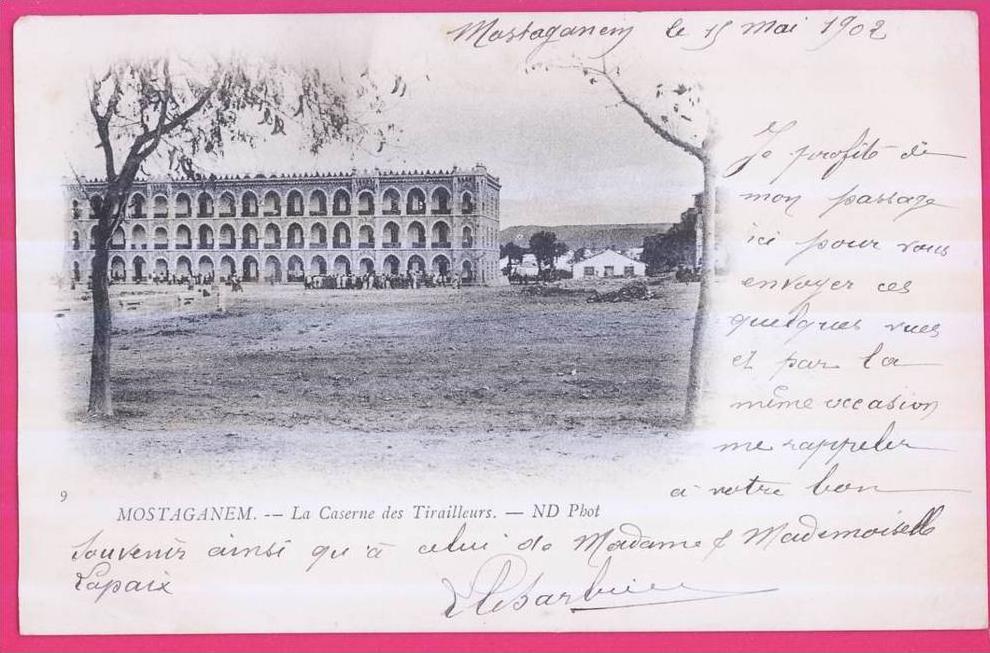 Mostaganem le 15 Mai 1902
Je profite de
mon passage
ici pour vous
envoyer ces
quelques vues
et par la
même occasion
me rappeler
à votre bon
9
MOSTAGANEM. -- La Caserne des Tirailleurs. — ND Phot
souvenir ainsi qu'à celui de Madame & Mademoiselle
Lapaix